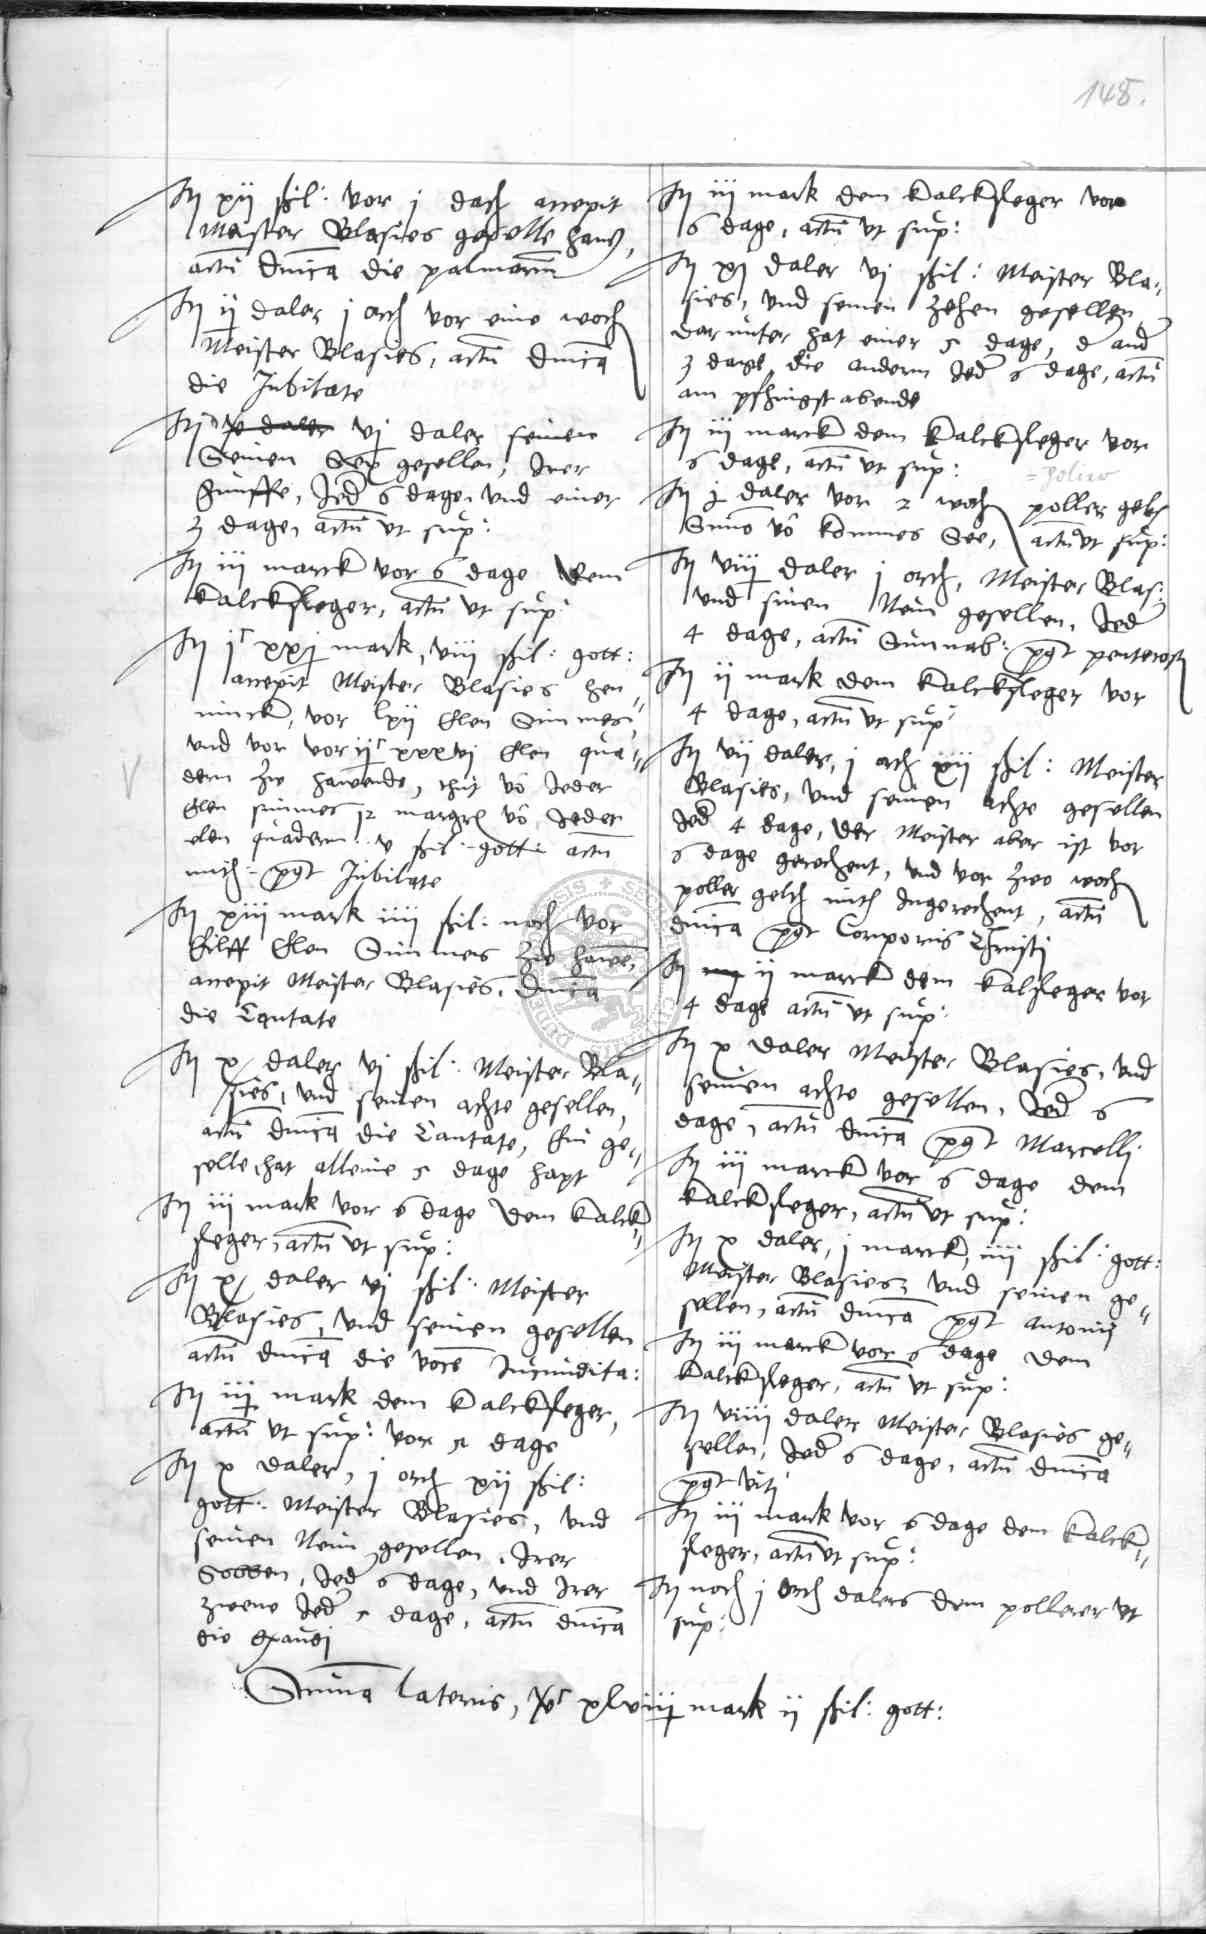 148.
It xij ßil: vor j dach accepit
Meister Blasies geselle hans,
actu dnica die palmaru
It ij daler j orth vor eine woch
Meister Blasies, actu dnica
die Jubilate
It x daler vj daler seinen
Seinen Sex gesellen, Irer
Funffe, Jed 6 dage, vnd einer
3 dage, actu vt sup:
It iij marck vor 6 dage dem
kalckfleger, actu vt sup:
It jc xxj mark, viij ßil: gott:
accepit Meister Blasies hen-
ninck, vor lxij Elen Simmes
vnd vor vor ijc xxxvj Elen qua-
dern zw hawende, thut vo Jeder
Elen simmes 12 vo Jeder
elen quadern v ßil: gott: actu
mith: pgt Jubilate
It xiij mark iiij ßil: noch vor
Eilff Elen Simmes zw hawe,
accepit Meister Blasies, dnica
die Cantate
It x daler vj ßil: Meister Bla-
sies, vnd seinen achte gesellen,
actu dnica die Cantate, Ein ge-
selle hat alleine 5 dage hapt
It iij mark vor 6 dage dem kalck-
fleger, actu vt sup:
It x daler vj ßil: Meister
Blasies, vnd seinen gesellen
actu dnica die voce Jucundita:
It iij mark dem kalckfleger,
actu vt sup: vor 5 dage
It x daler, j orth xij ßil:
gott: Meister Blasies, vnd
seinen Nein gesellen, Irer
Sobben, Jed 6 dage, vnd Irer
zwene Jed 5 dage, actu dnica
die Exaudi
It iij mark dem kalckfleger vor
6 dage, actu vt sup:
It xj daler vj ßil: Meister Bla-
sies, vnd seinen zehen gesellen
dar unter hat einer 5 dage, d and
3 dage die andern Jed 6 dage, actu
am pfhingst abende
It iij marck dem kalckfleger vor
6 dage, actu vt sup:
= Polier
It j daler vor 2 woch poller gelt
Simo vo kommes See, actu vt sup:
It viij daler j orth, Meister Blas:
vnd sinen Nein gesellen, Jed
4 dage, actu Sunnab: pgt pentecost
It ij mark dem kalckfleger vor
4 dage, actu vt sup:
It vij daler, j orth xij ßil: Meister
Blasies, vnd seinen achte gesellen
Jed 4 dage, der Meister aber ist vor
6 dage gerechent, vnd vor zwo woch
poller gelth mith Ingerechent, actu
dnica pgt Corporis Christi
It ij marck dem kalfleger vor
4 dage actu vt sup:
It x daler Meister Blasies, vnd
seinen achte gesellen, Jed 6
dage, actu dnica pgt Marcelli
It iij marck vor 6 dage dem
kalckfleger, actu vt sup:
It x daler, j marck, iiij ßil: gott:
Meister Blasies, vnd seinen ge-
sellen, actu dnica pgt Antonij
It iij marck vor 6 dage dem
kalckfleger, actu vt sup:
It viiij daler Meister Blasies ge-
sellen, Jed 6 dage, actu dnica
pgt viti
It iij mark vor 6 dage dem kalck-
fleger, actu vt sup:
It noch j orth dalers dem pollerer vt
sup:
Suma lateris, xlviiij mark ij ßil: gott: